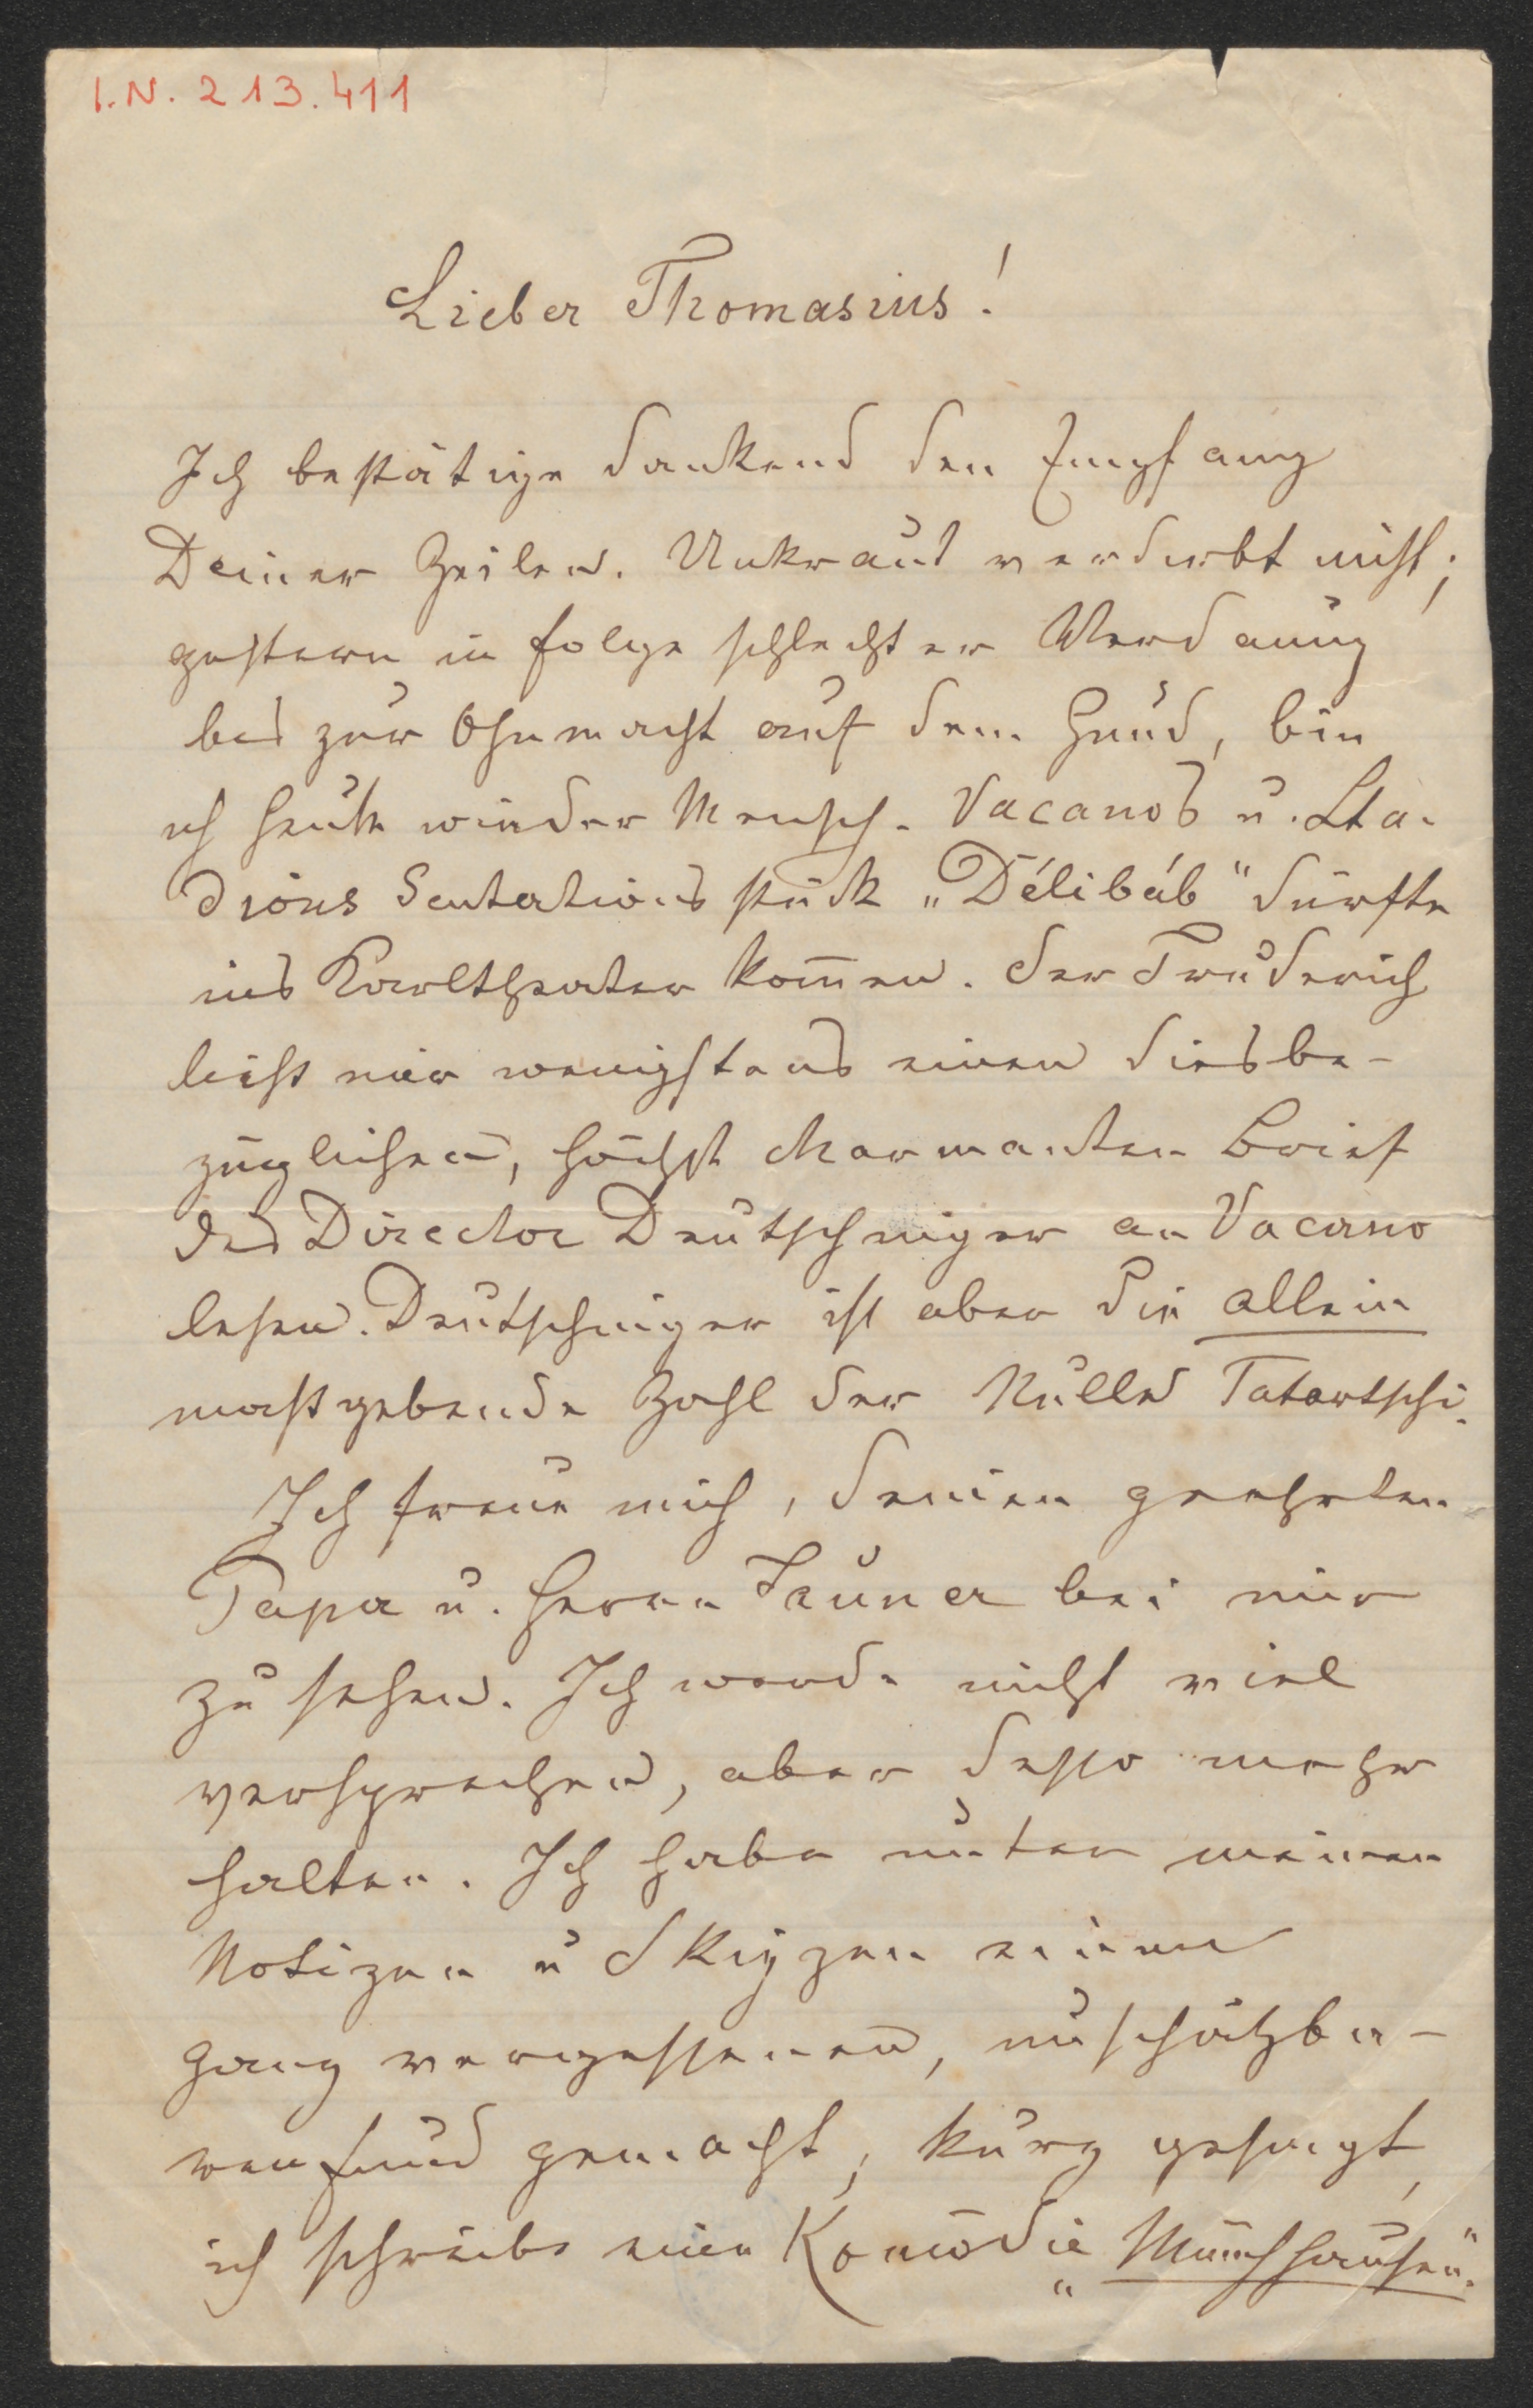 I.N. 213.411
Lieber Thomasius!
Ich bestätige dankend den Empfang
Deiner Zeilen. Unkraut verdirbt nicht;
gestern in folge schlechter Verdauung
bis zur Ohnmacht auf dem Hund, bin
ich heute wieder Mensch. Vacanos u. Sta-
dions Sentations stück „Délibáb" dürfte
ins Karltheater kom̅en. Der
ließ mir wenigstens einen diesbe-
züglichen, höchst charmanten Brief
des Director Deutschniger an Vacano
lesen. Deutschniger ist aber die allein
maßgebende Zahl der Nulle Tatartschi.
Ich freue mich, deinen geehrten
Papa u. Herrn Jauner bei mir
zu sehen. Ich werde nicht viel
versprechen, aber desto mehr
halten. Ich habe unter meinen
Notizen u Skizzen einen
ganz vergessenen, unschätzba-
ren Fund gemacht, kurz gesagt,
ich schreibe eine Komödie „Münchhausen".